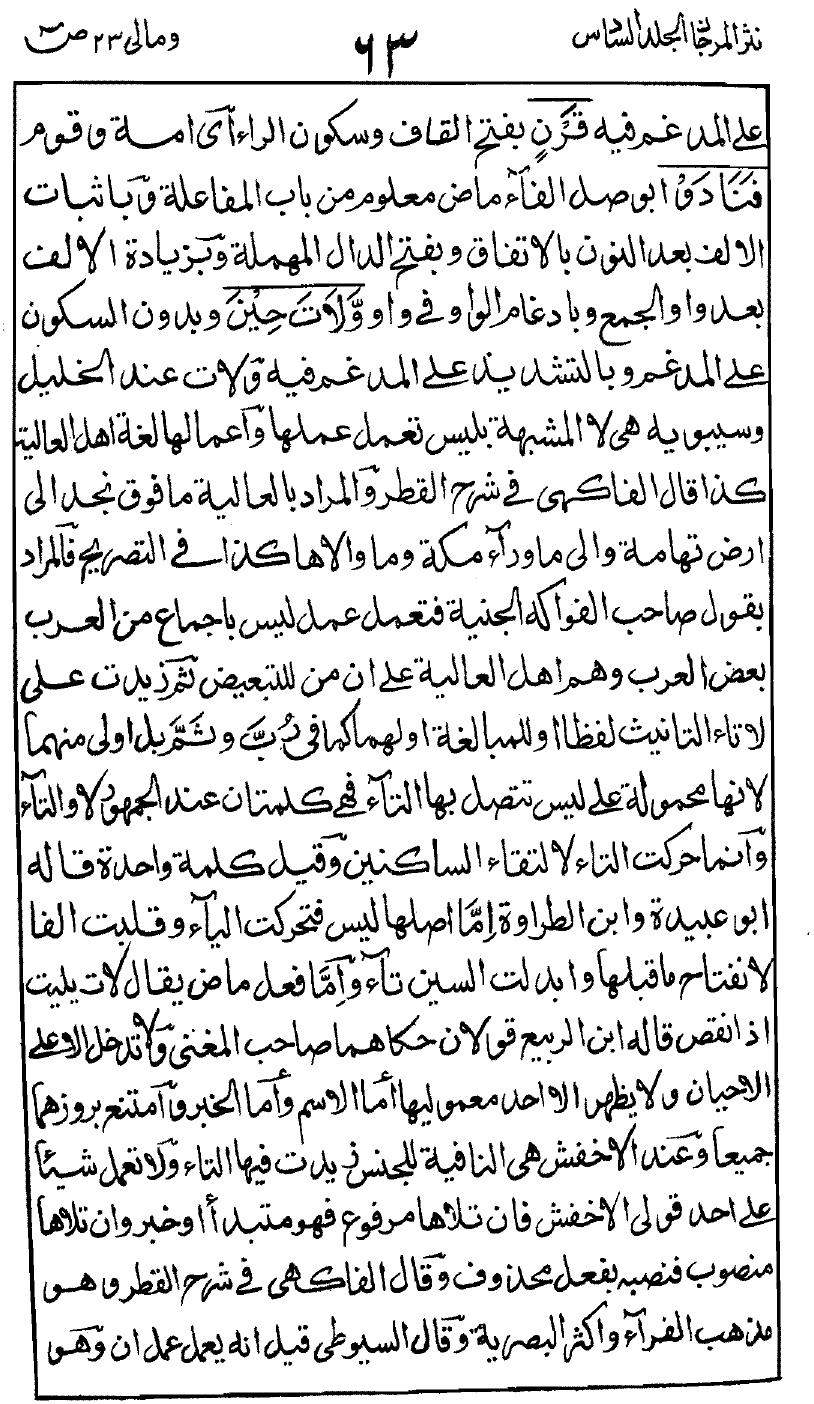 نثر المرجان المجلد السادس
٦٣
ومالی ٢٣ ص
على المدغم فيه قَرْنٍ بفتح القاف وسكون الراء أى امة وقوم
فَنَادَوْا بوصل الفاء ماض معلوم من باب المفاعلة وباثبات
الالف بعد النون بالاتفاق وبفتح الدال المهملة وبزيادة الالف
بعد واو الجمع وبادغام الواو فى واو وَّلَاتَ حِيْنَ وبدون السكون
على المدغم وبالتشديد على المدغم فيه ولات عند الخليل
وسيبويه هى لا المشبهة بليس تعمل عملها وآعمالها لغة اهل العالية
كذا قال الفاكهى فى شرح القطر والمراد بالعالية ما فوق نجد الى
ارض تهامة والى ما ورآء مكة وما والاها كذا فى التصريح فالمراد
بقول صاحب الفواكه الجنية فتعمل عمل ليس باجماع من العرب
بعض العرب وهم اهل العالية على ان من للتبعيض ثم زيدت على
لا تاء التانيث لفظا اوللمبالغة اولهما كما فى رُبَّ وثَمَّ بل اولى منهما
لانها محمولة على ليس تتصل بها التآء فهى كلمتان عند الجمهور لا والتآء
وآنما حركت التاء لالتقاء الساكنين وقيل كلمة واحدة قاله
ابو عبيدة وابن الطراوة اِمَّا اصلها ليس فتحركت اليآء وقلبت الفا
لانفتاح ما قبلها وابدلت السين تآء وَاِمَّا فعل ماض يقال لات يليت
اذا نقص قاله ابن الربيع قولان حكاهما صاحب المغنى ولا تدخل الا على
الاحيان ولا يظهر الا احد معموليها أما الاسم وأما الخبر وآمتنع بروزهما
جميعا وعند الاخفش هى النافية للجنس زيدت فيها التاء ولا تعمل شيئا
على احد قولى الاخفش فان تلاها مرفوع فهو متبدأ او خبر وان تلاها
منصوب فنصبه بفعل محذوف وقال الفاكهى فى شرح القطر وهو
مذهب الفرآء واكثر البصرية وقال السيوطى قيل انه يعمل عمل ان وهو